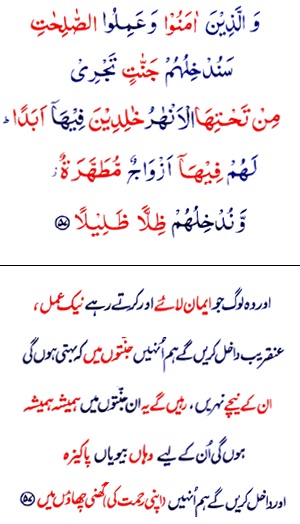 وَ الَّذِيْنَ اٰمَنُوْا وَ عَمِلُوا الصّٰلِحٰتِ
سَنُدْخِلُهُمْ جَنّٰتٍ تَجْرِىْ
مِنْ تَحْتِهَا الْاَنْهٰرُ خٰلِدِيْنَ فِيْهَاۤ اَبَدًا ؕ
لَهُمْ فِيْهَاۤ اَزْوَاجٌ مُّطَهَّرَةٌ ؗ
وَّ نُدْخِلُهُمْ ظِلًّا ظَلِيْلًا ﴿۵۷﴾
اور وہ لوگ جو ایمان لائے اور کرتے رہے نیک عمل،
عنقریب داخل کریں گے ہم اُنہیں جنّتوں میں کہ بہتی ہوں گی
ان کے نیچے نہریں، رہیں گے یہ ان جنّتوں میں ہمیشہ ہمیشہ
ہوں گی اُن کے لیے وہاں بیویاں پاکیزہ
اور داخل کریں گے ہم اُنہیں (اپنی رحمت کی) گھنی چھاؤں میں ﴿۵۷﴾